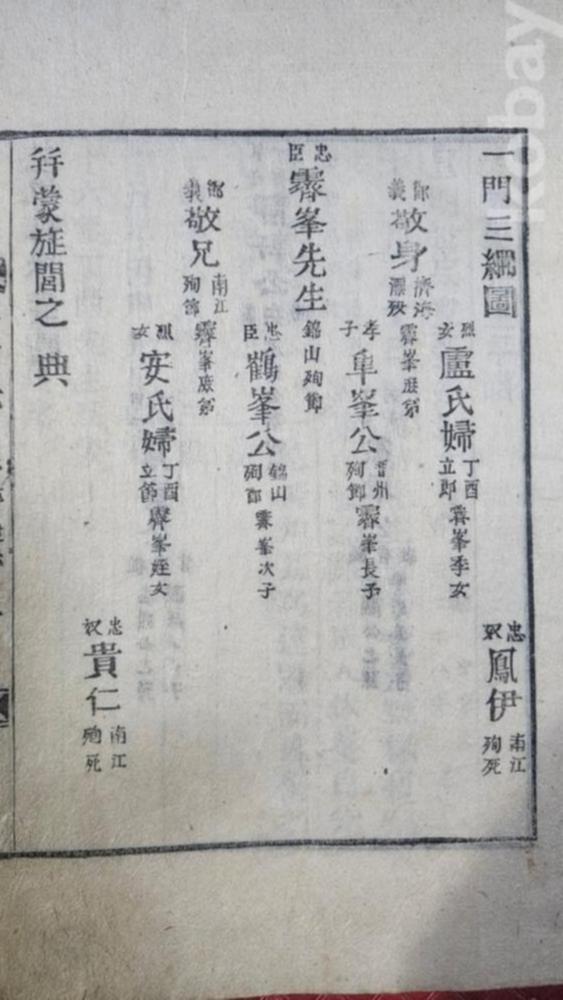 一門三綱圖
忠奴鳳伊南江殉死
烈女盧氏婦丁酉立節霽峯季女
節義敬身濟海漂歿霽峯庶弟
孝子阜峯公晋州殉節霽峯長子
忠臣霽峯先生錦山殉節
忠臣鶴峯公錦山殉節霽峯次子
節義敬兄南江殉節霽峯庶弟
烈女安氏婦丁酉立節霽峯姪女
忠奴貴仁南江殉死
幷蒙旌閭之典
kobay